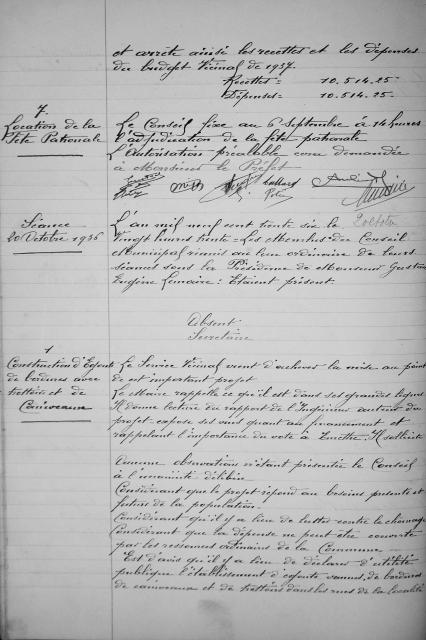 et arrête ainsi les recettes et les dépenses
du budget Vicinal de 1937.
Recettes = 10.514.25 =
Dépenses = 10.514.25 =
7.
Location de la
Fête Patronale
Le Conseil fixe au 6 Septembre à 14 heures
l'adjudication de la fête patronale
L'Autorisation préalable sera demandée
à Monsieur le Préfet
Séance
20 Octobre 1936
L'an mil neuf cent trente six le 20 octobre
Vingt heures trente = Les Membres du Conseil
Municipal réunis au lieu ordinaire de leurs
séances sous la Présidence de Monsieur Gustave
Eugène Lemaire : Etaient présent.
Absent
Secrétaire
1
Construction d'Egouts
de bordures avec
trottoirs et de
Caniveaux
Le Service Vicinal vient d'achever la mise au point
de cet important projet
Le Maire rappelle ce qu'il est dans ses grandes lignes
Il donne lecture du rapport de l'Ingénieur auteur du
projet expose ses vues quant au financement et
rappelant l'importance du vote à émettre Il sollicite
Aucune observation n'étant présentée le Conseil
à l'unanimité délibère
Considérant que le projet répond au besoins présents et
futurs de la population
Considérant qu'il y a lieu de lutter contre le chomage
Considérant que la dépense ne peut être couverte
par les ressources ordinaires de la Commune
Est d'avis qu'il y a lieu de déclarer d'utilité
publique l'établissement d'égouts vannes, de bordures
de caniveaux et de trottoirs dans les rues de la localité